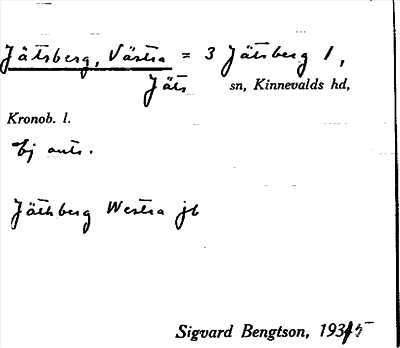 Jätsberg, Västra = 3 Jätsberg 1,
Jäts sn, Kinnevalds hd,
Kronob. l.
Ej ants.
Jäthsberg Westra jb
Sigvard Bengtson, 1935